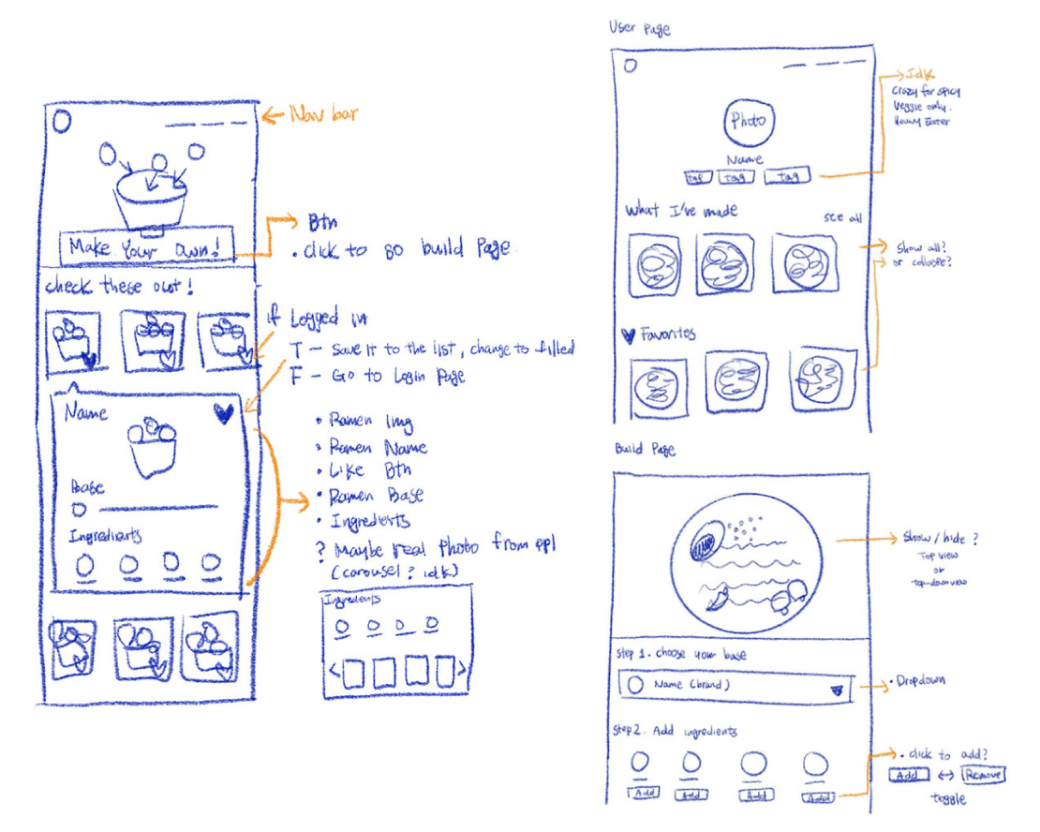 Nav bar
Make Your Own!
Btn
• click to go build Page
check these out!
if Logged in
T - Save it to the list, change to filled
F - Go to Login Page
Name
Base
Ingredients
• Ramen Img
• Ramen Name
• Like Btn
• Ramen Base
• Ingredients
? Maybe real Photo from ppl
(carousel? idk)
Ingredients
< >
User Page
Photo
Name
Tag Tag Tag
Idk
Crazy for spicy
Veggie only.
Heavy Eater
What I've made
see all
Show all?
or collapse?
Favorites
Build Page
Show / hide ?
Top view
or
Top-down view
Step 1. choose your base
Name (brand)
• Dropdown
Step 2. Add ingredients
Add Add Add Add
• click to add?
Add ↔ Remove
toggle